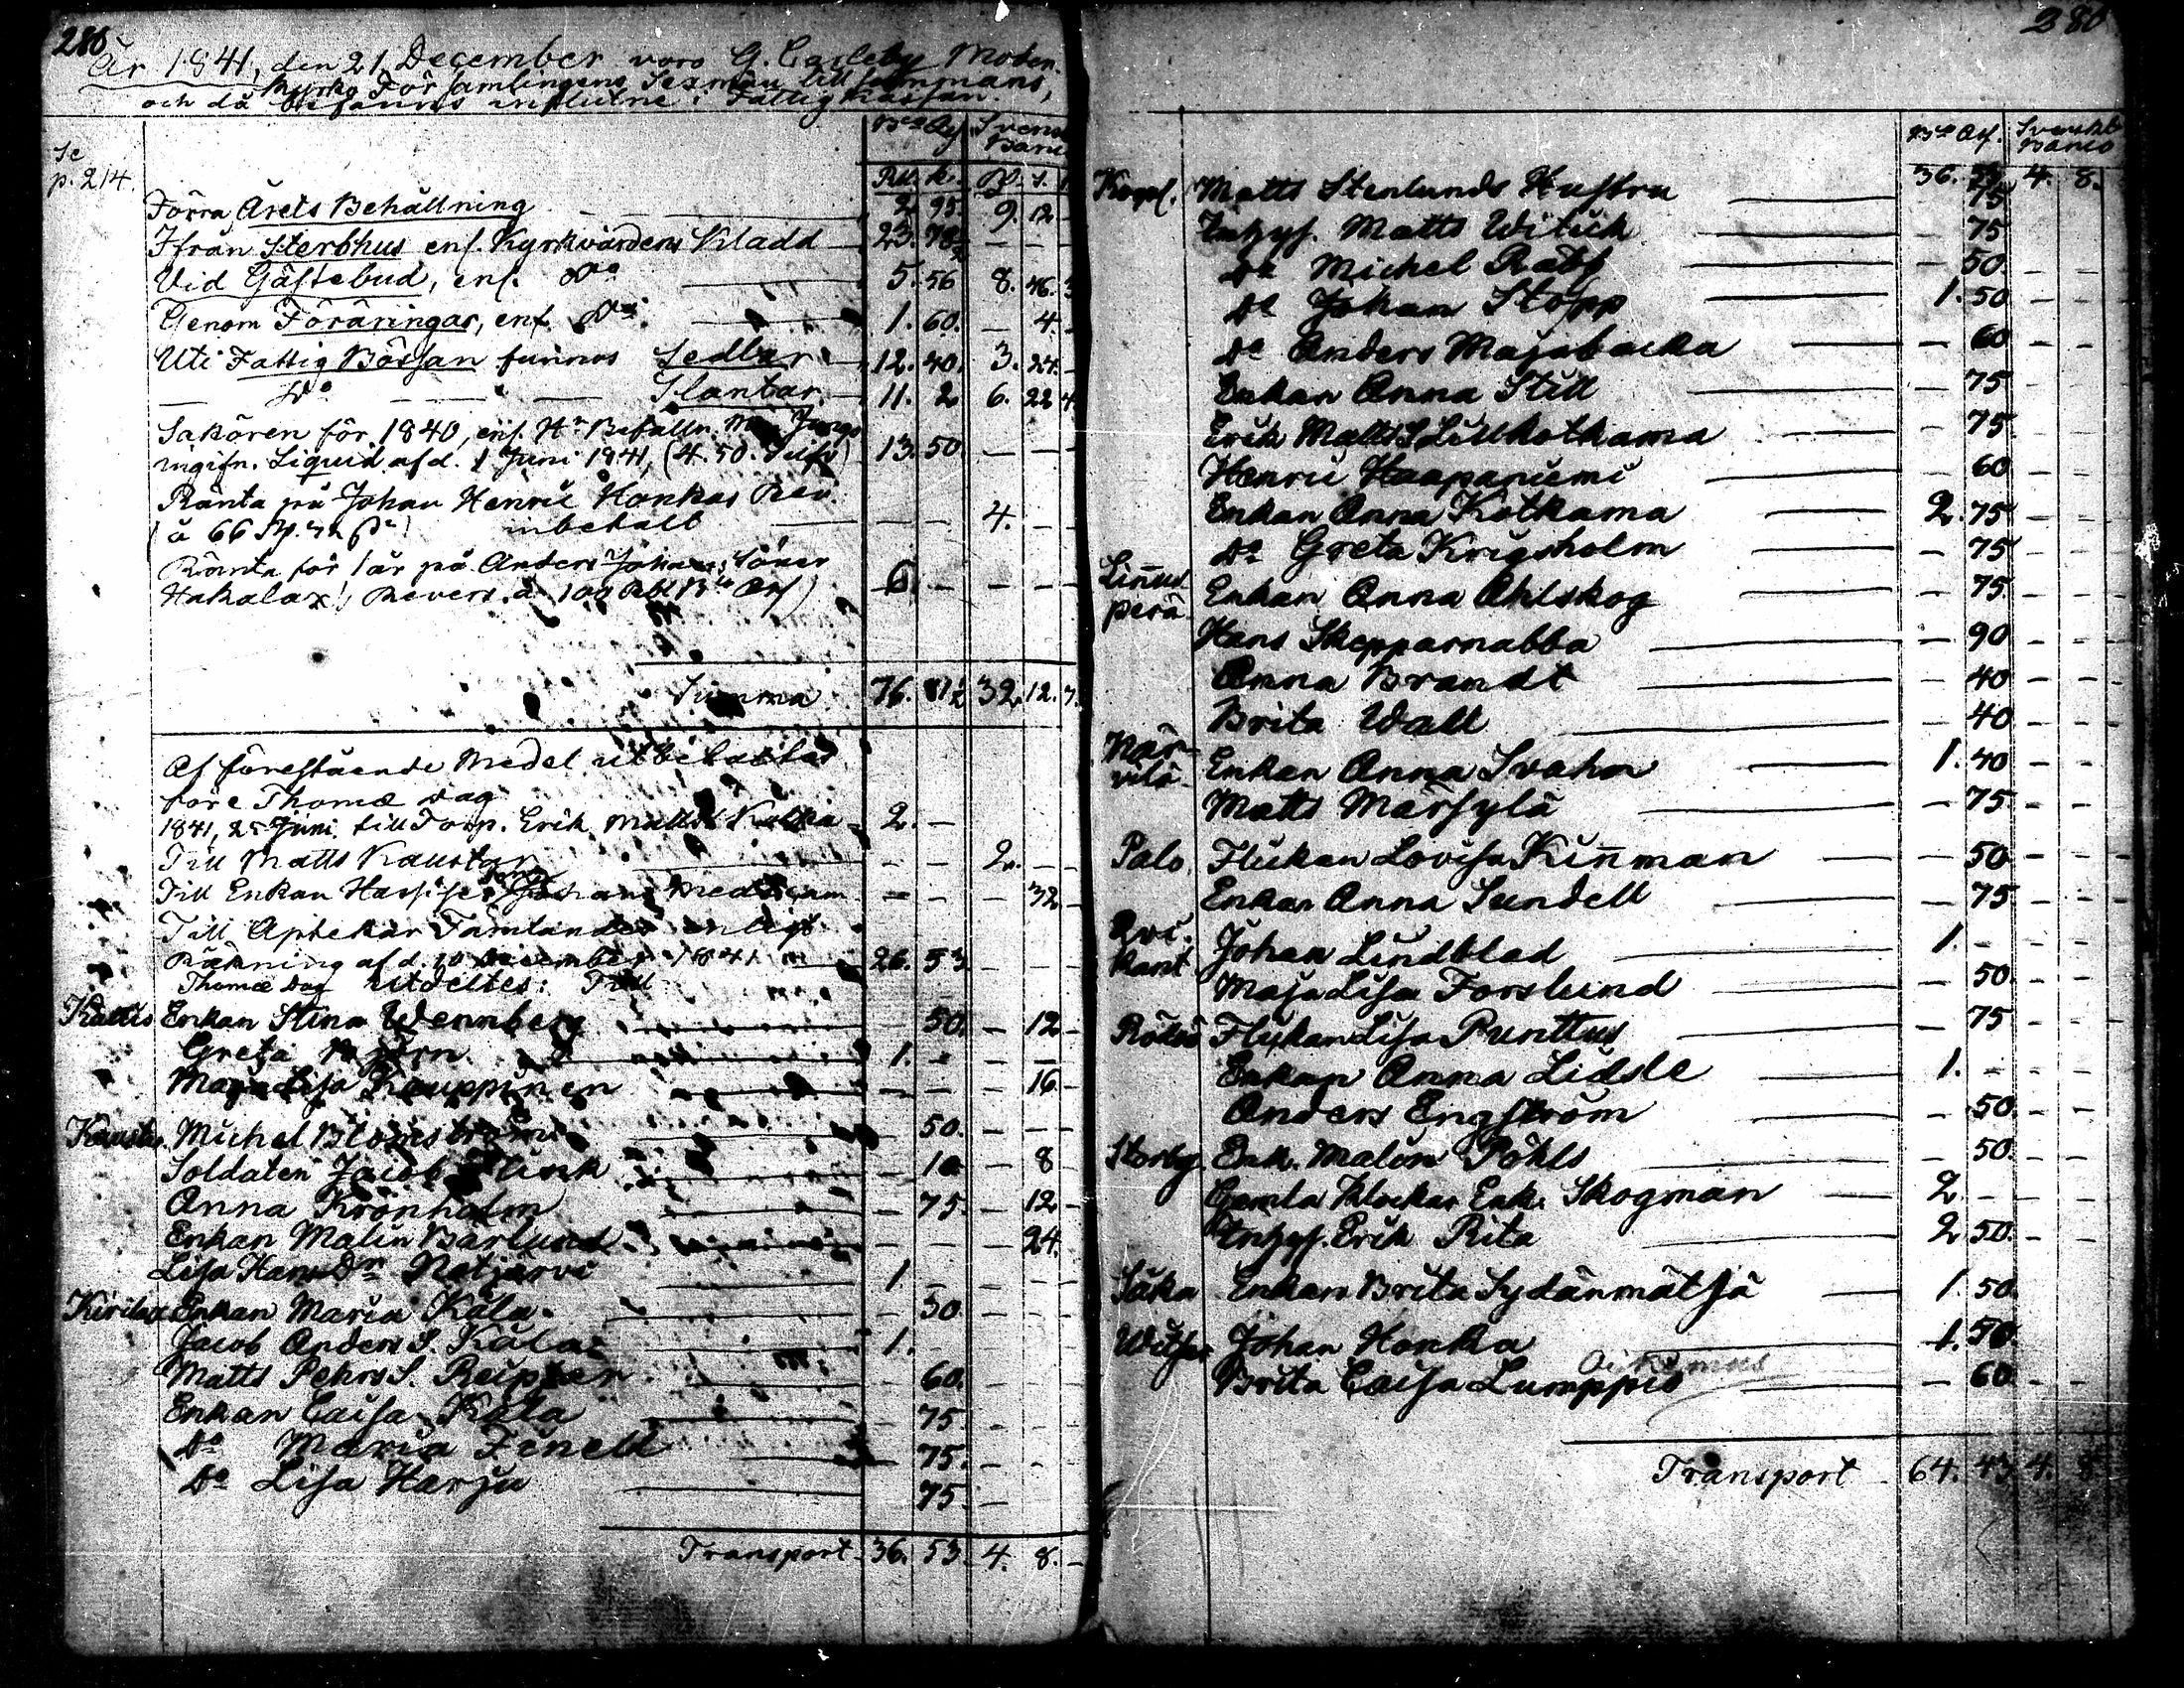 280
År 1841, den 21 December voro G. Carleby Moder-
kyrko Församlingens Sexmän tillsammans,
och då befanns influtne i Fattig Kassan.
Se p. 214.
Bco Ass. Svensk Banco
Rub. k. R. s.
Förra Årets Behållning 2. 95. 9. 12 -
Ifrån Sterbhus enl. Kyrkvärdens Kladd 23. 78½ - -
Vid Gästebud, enl. Do 5. 56 8. 46. 3
Genom Föräringar, enl. Do 1. 60. - 4. -
Uti Fattig Bössan funnos Sedlar 12. 40. 3. 24. -
- Do - Slantar 11. 2 6. 22 4
Saköron för 1840, enl. Hr Befalln. M
ingifn. Liquid af d. 1 Juni 1841, (4. 50. Silfv) 13. 50 - -
Ränta på Johan Henric Honkas Rev.
(à 66 inbetalt - - 4. -
Ränta för 1 år på Anders Johans Söner
Hakalax', Revers à 100 Rbl Bco Ass) 6. - - -
Summa 76. 81½ 32. 12. 7.
Af förestående Medel utbetaltes
före Thomæ Dag
1841, 25 Juni till Torp. Erik Matts S. 2. -
Till Matts Kaustar - - 2. -
Till Enkan Medicam - - - 32 -
Till Apthekar enligt
Räkning af d. 10 December 1841 26. 53 - -
Thomæ Dag utdeltes: Till
Kallis Enkan Stina Wennberg 50. - 12 -
Greta Björn 1. - - -
Maja Lisa Kauppinen - - - 16. -
Kaustar. Michel Blomström 50. - -
Soldaten Jacob Flink - 10 - 8
Anna Krönholm - 75 - 12 -
Enkan Malin Barlund - - - 24.
Lisa Hans Dr Natjärvi 1. - - -
Kirilax Enkan Maria Kala - 50. - -
Jacob Anders S. Kala 1. - - -
Matts Pehrs S. 60. - -
Enkan Caisa Kala - 75. - -
Do Maria Fenell 75. - -
Do Lisa Harju 75 -
Transport 36. 53 4. 8. -
280
Bco Ass. Svenskt Banco
36. 53 4. 8.
Korpl. Matts Stenlunds Hustru 75
Inhys. Matts Witick 75 - -
Do Michel Rabb - 50. - -
Do Johan Stopp 1. 50 - -
Do Anders Majabacka - 60 - -
Enkan Anna Still - 75 - -
Erik Matts S Lillkotkama - 75. - -
Henric Haapaniemi - 60 - -
Enkan Anna Kotkama 2. 75 - -
Do Greta Krigsholm - 75 - -
Linnus perä Enkan Anna Ahlskog - 75. - -
Hans Skepparnabba - 90 - -
Anna Brandt - 40 - -
Brita Wall - 40 - -
När- vilä Enkan Anna Svahn 1. 40 - -
Matts Märsylä - 75. - -
Palo Flickan Lovisa Kinnman - 50 - -
Enkan Anna Sundell - 75 - -
Qvi- kant Johan Lindblad 1. - - -
Maja Lisa Forslund - 50. - -
Rökiö Flickan Lisa Punttus - 75 - -
Enkan Anna Lidsle 1. - - -
Anders Engström - 50. - -
Storby Enk. Malin Pöhls - 50. - -
Gamla Klockar Enk. Skogman 2. - - -
Inhys. Erik Rita 2. 50. - -
Såka Enkan Brita Sydänmätsä 1. 50. - -
Witsar Johan Honka 1. 50. - -
Brita Caisa Lumppio - 60 - -
Transport 64. 43 4. 8